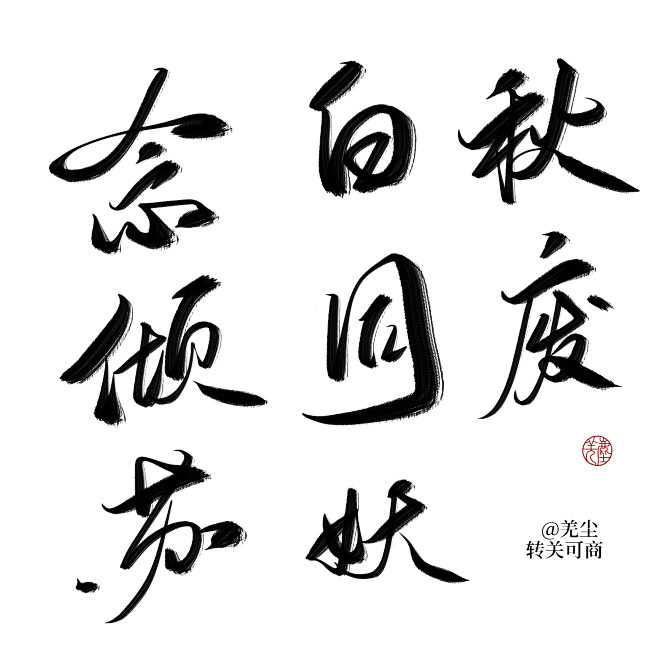 秋废
白妖
念倾苏
@羌尘
转关可商